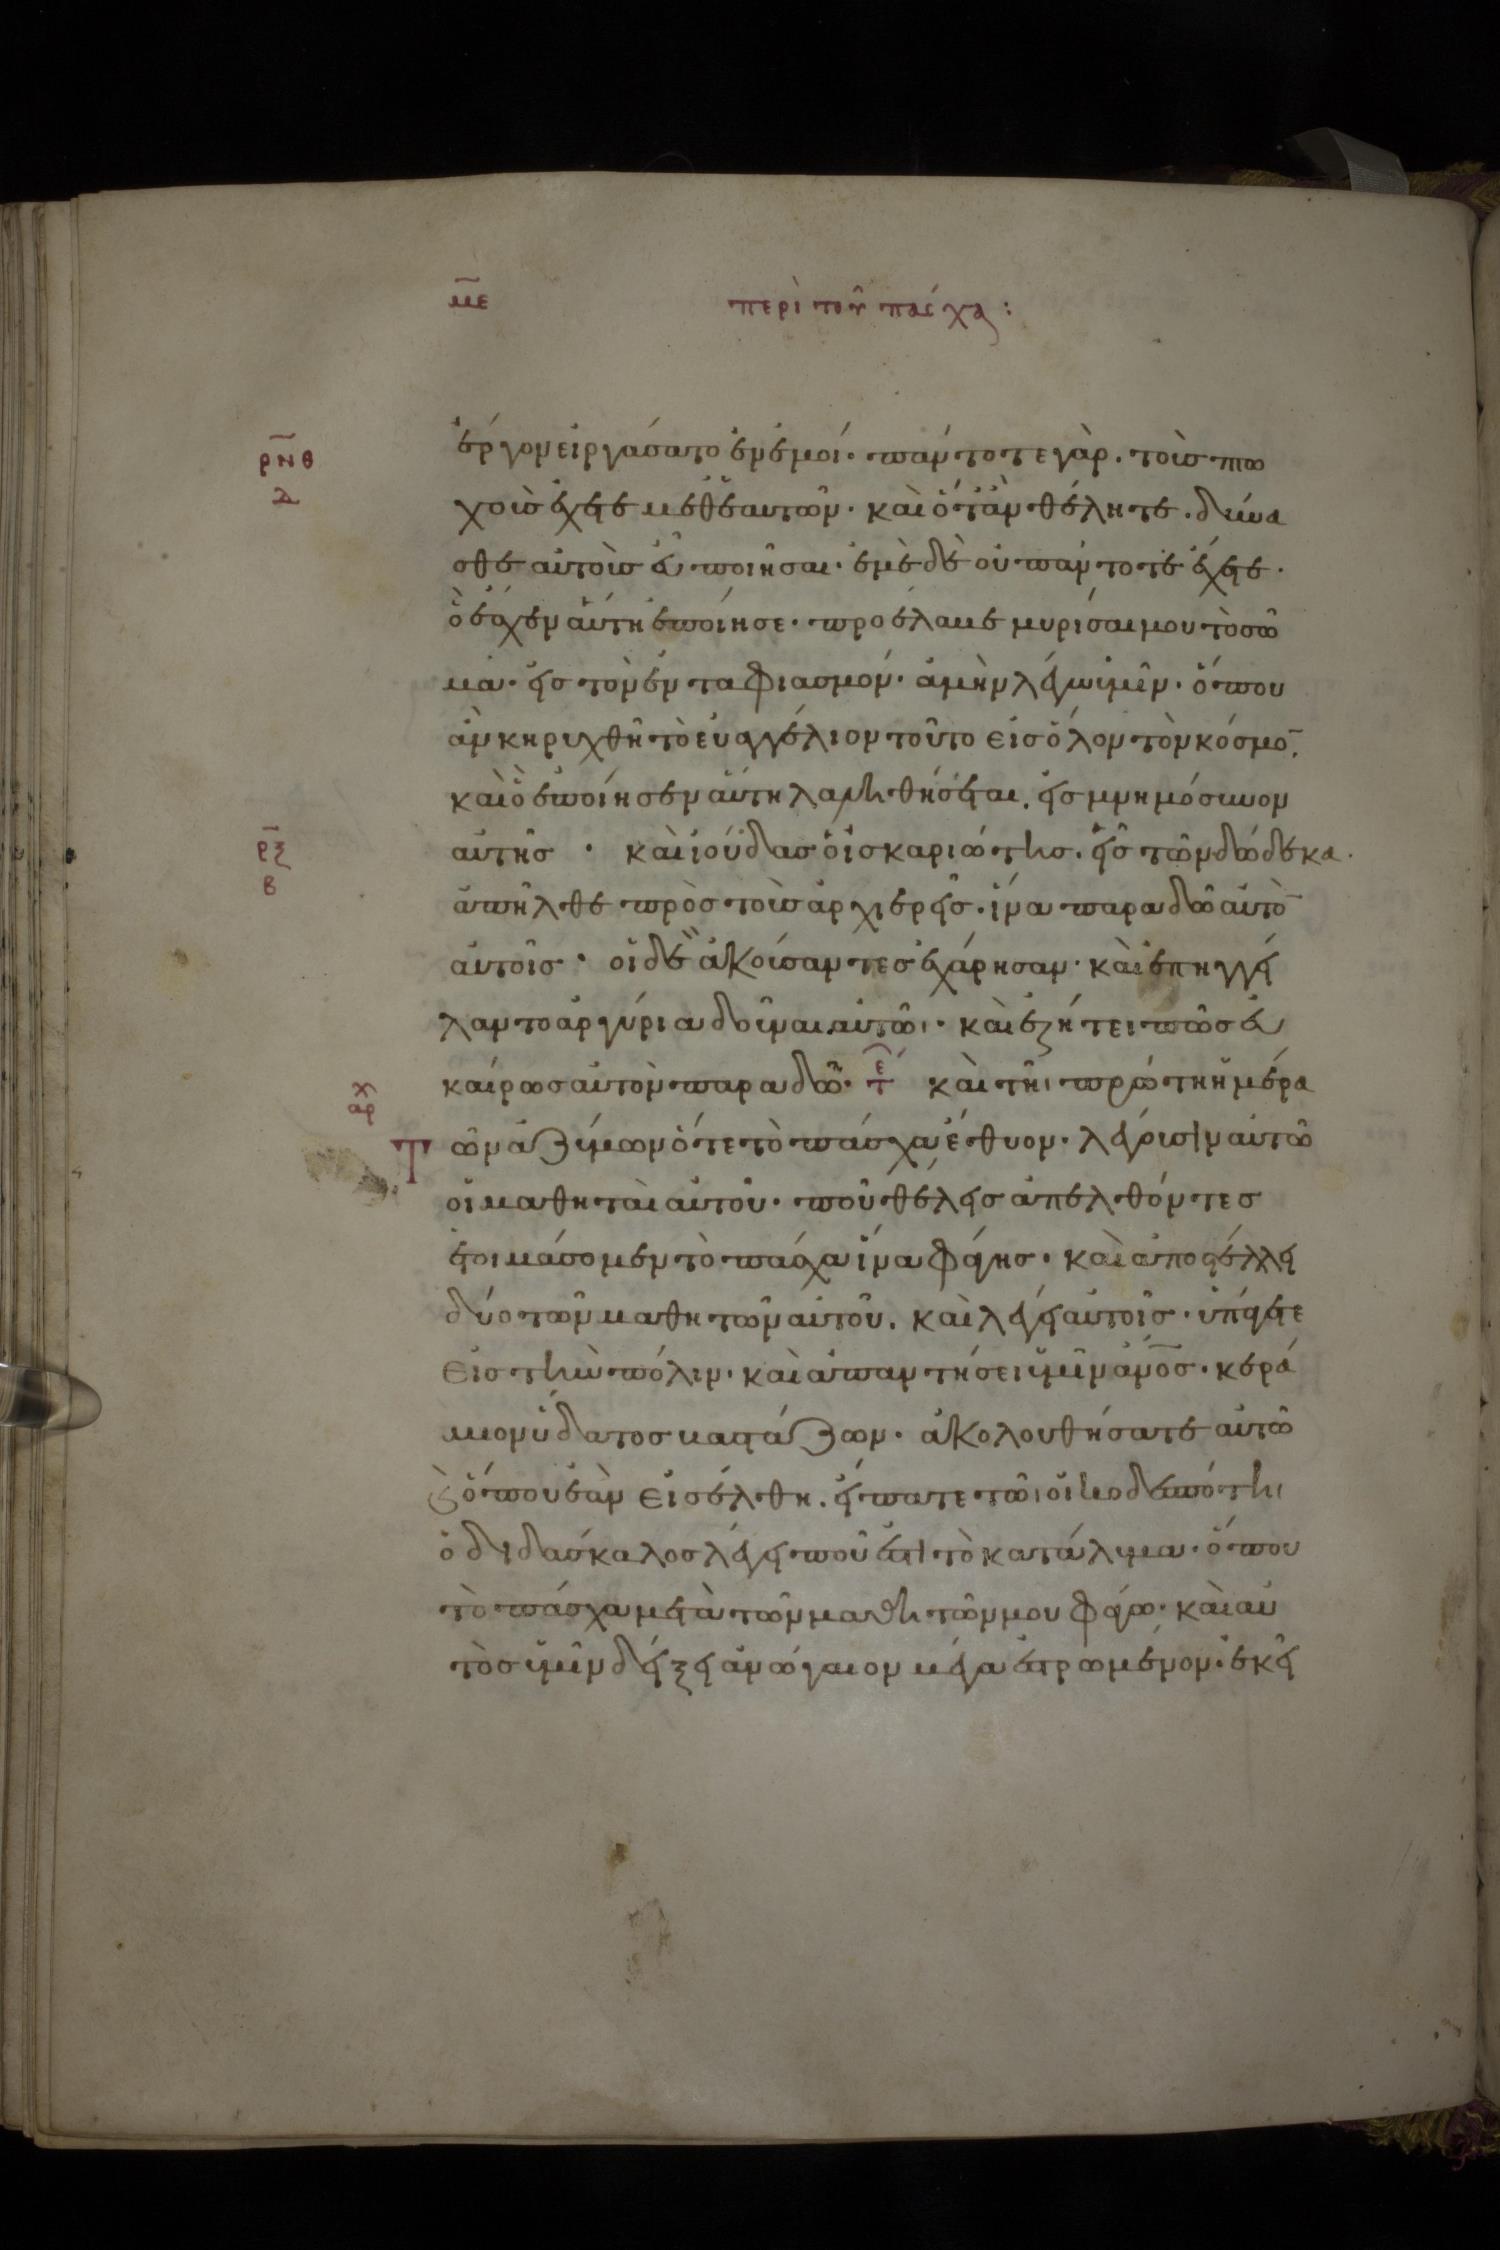 με περὶ τοῦ πάσχα :
ρνθ
δ
ἔργον εἰργάσατο ἐν ἐμοί · πάντοτε γὰρ · τοὺς πτω
χοὺς ἔχετε μεθ ἑαυτῶν · καὶ ὅτὰν θέλητε · δύνα
σθε αὐτοὺς εὖ ποιῆσαι · ἐμὲ δὲ οὐ πάντοτε ἔχετε ·
ὃ ἔσχεν αὕτη ἐποίησε · προέλαβε μυρίσαι μου τὸ σῶ
μα · εἰς τὸν ἐνταφιασμόν · ἀμὴν λέγω ὑμῖν · ὅπου
ἂν κηρυχθῆ τὸ εὐαγγέλιον τοῦτο εἰς ὅλον τὸν κόσμο̄ ·
καὶ ὃ ἐποίησεν αὕτη λαληθήσεται · εἰς μνημόσυνον
ρξ
β
αὐτῆς · καὶ ἰούδας ὁ ἰσκαριώτης · εἷς τῶν δώδεκα ·
ἀπῆλθε πρὸς τοὺς ἀρχιερεῖς · ἵνα παραδῶ αὐτὸ̄
αὐτοῖς · οἱ δὲ ἀκούσαντες ἐχάρησαν · καὶ ἐπηγγεί
λαντο ἀργύρια δοῦναι αὐτῶι · καὶ ἐζήτει πῶς εὐ
καίρως αὐτὸν παραδῶ · τε καὶ τῆι πρώτη ἡμέρα
χ
αρ
Τ ῶν ἀζύμων ὅτε τὸ πάσχα ἔθυον · λέγουσιν αὐτῶ
οἱ μαθηταὶ αὐτοῦ · ποῦ θέλεις ἀπελθόντες
ἑτοιμάσομεν τὸ πάσχα ἵνα φάγης · καὶ ἀποστέλλει
δύο τῶν μαθητῶν αὐτοῦ · καὶ λέγει αὐτοῖς · ὑπάγετε
εἰς τὴν πόλιν · καὶ ἀπαντήσει ὑμῖν ἄνος · κερά
μιον ὕδατος βαστάζων · ἀκολουθήσατε αὐτῶ
ϛ ὅπου ἐὰν εἰσέλθη · εἴπατε τῶι οἰκοδεσπότηι
ὁ διδάσκαλος λέγει ποῦ ἐστι τὸ κατάλυμα · ὅπου
τὸ πάσχα μετὰ τῶν μαθητῶν μου φάγω · καὶ αὐ
τὸς ὑμῖν δείξει ἀνώγαιον μέγα ἐστρωμένον · ἐκεῖ